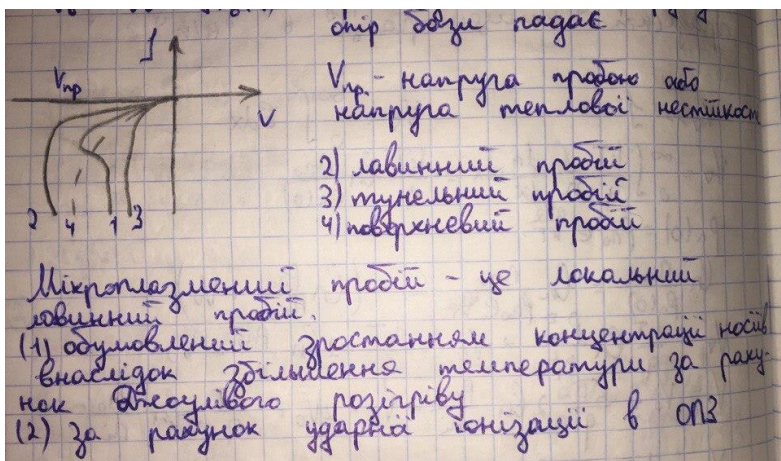 опір бази падає
J
Vпр
V
Vпр. - напруга пробою або
напруга теплової нестійкост
2) лавинний пробій
3) тунельний пробій
4) поверхневий пробій
2 4 1 3
Мікроплазменний пробій - це локальний
лавинний пробій.
(1) обумовлений зростанням концентрації носіїв
внаслідок збільшення температури за раху-
нок Джоулівого розігріву
(2) за рахунок ударної іонізації в ОПЗ